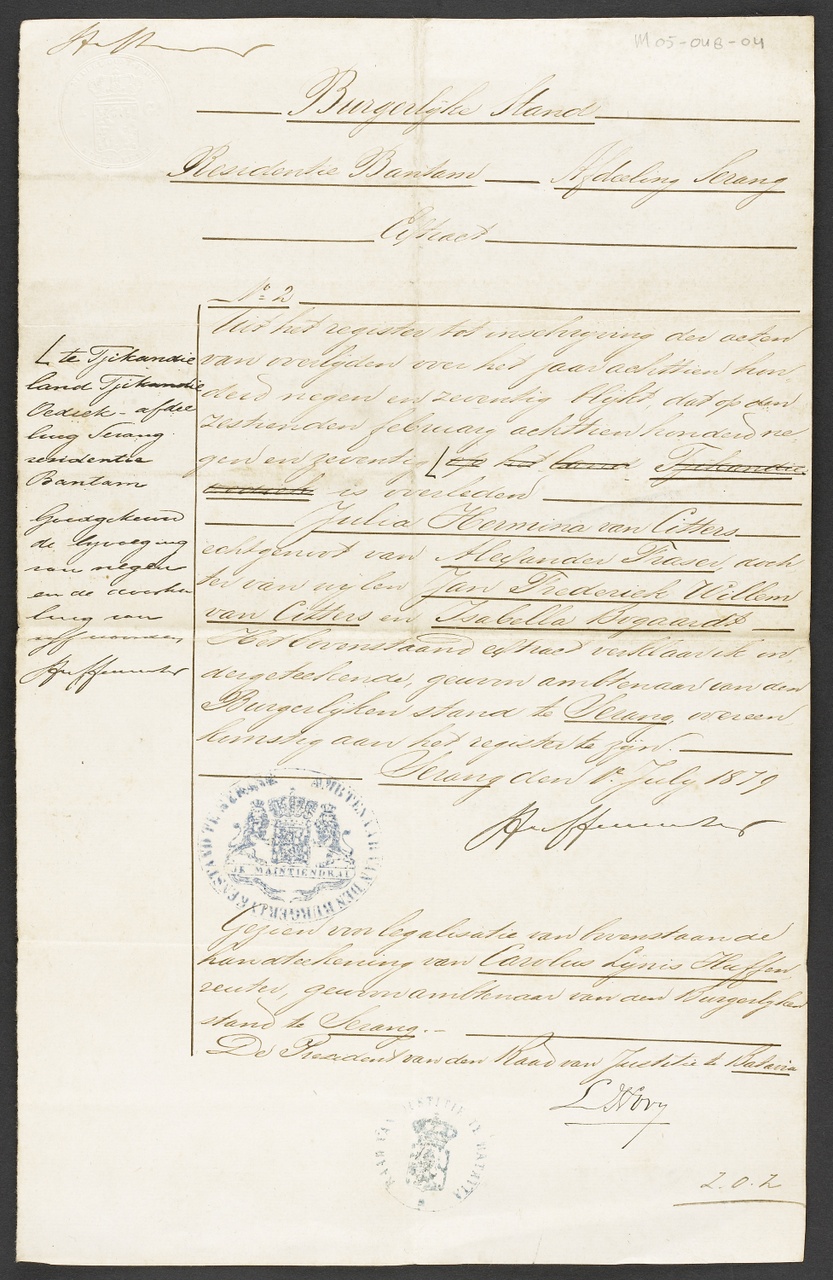 M05-04B-04
Burgerlijke Stand
Residentie Bantam Afdeeling Serang
Extract
No. 2
Uit het register tot inschrijving der acten
van overlijden over het jaar achttien hon-
derd negen en zeventig blijkt, dat op den
zestienden februarij achttien honderd ne-
gen en zeventig op het land Tjikandie
oedick is overleden
Julia Hermina van Citters
echtgenoot van Alexander Fraser, doch-
ter van wijlen Jan Frederick Willem
van Citters en Isabella Bogaardt
Het bovenstaand extract verklaar ik on-
dergeteekende, gewoon ambtenaar van den
Burgerlijken stand te Serang, overeen-
komstig aan het register te zijn.
Serang den 1e July 1879
te Tjikandie
land Tjikandie
Oedick - afdee
ling Serang
residentie
Bantam
Goedgekeurd
de bijvoeging
van negen
en de doorha
ling van
vijf woorden
AMBTENAAR VAN DEN BURGERLYKEN STAND TE SERANG
JE MAINTIENDRAI
Gezien voor legalisatie van bovenstaande
handteekening van Carolus Huffen
reuter, gewoon ambtenaar van den Burgerlijken
stand te Serang.-
De President van den Raad van Justitie te Batavia
RAAD VAN JUSTITIE TE BATAVIA
Z.O.Z